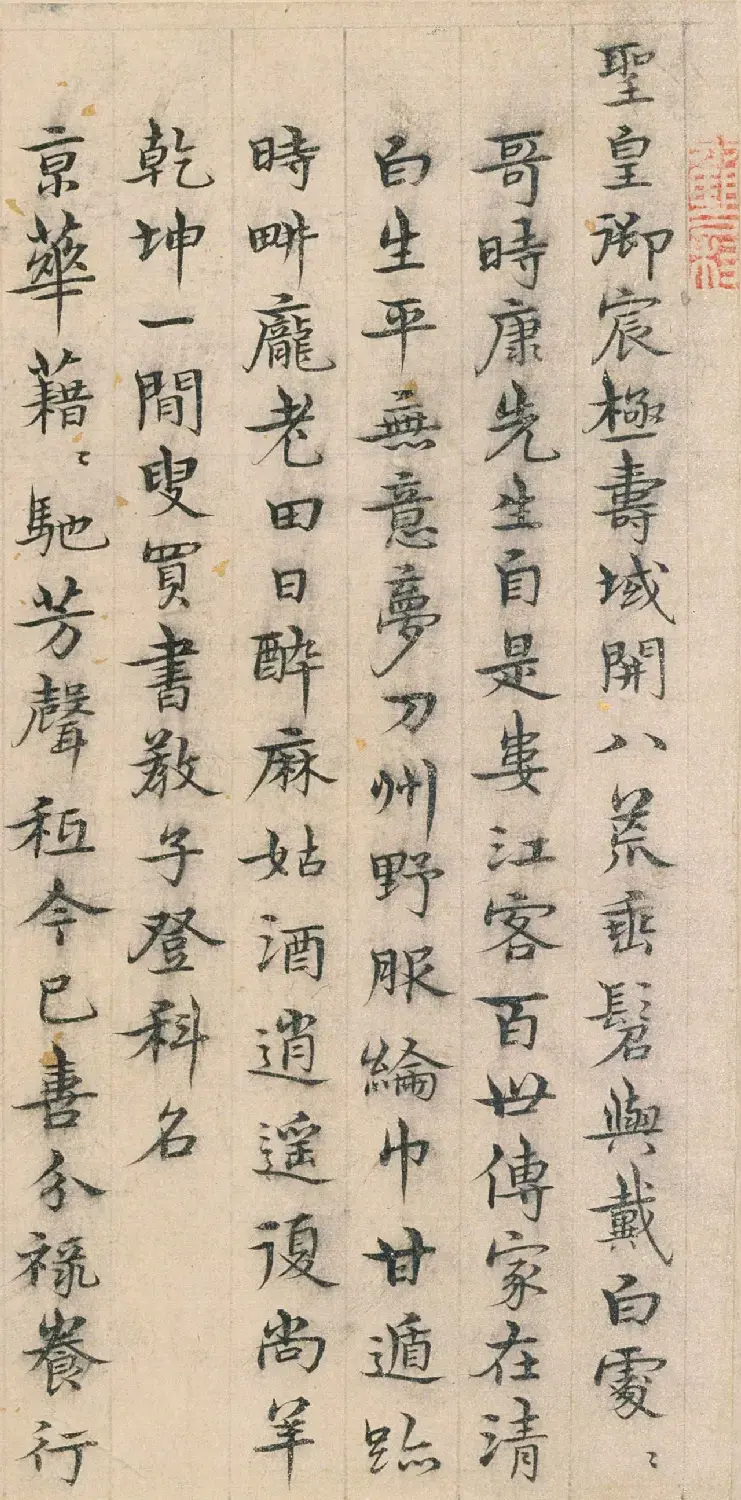 聖皇御宸極壽域開八荒垂髫與戴白處〻
哥時康先生自是婁江客百世傳家在清
白生平無意夢刀州野服綸巾甘遁跡
時畊龐老田日醉麻姑酒逍遥復尚羊
乾坤一閒叟買書教子登科名
京華藉〻馳芳聲秪今已喜分祿養行